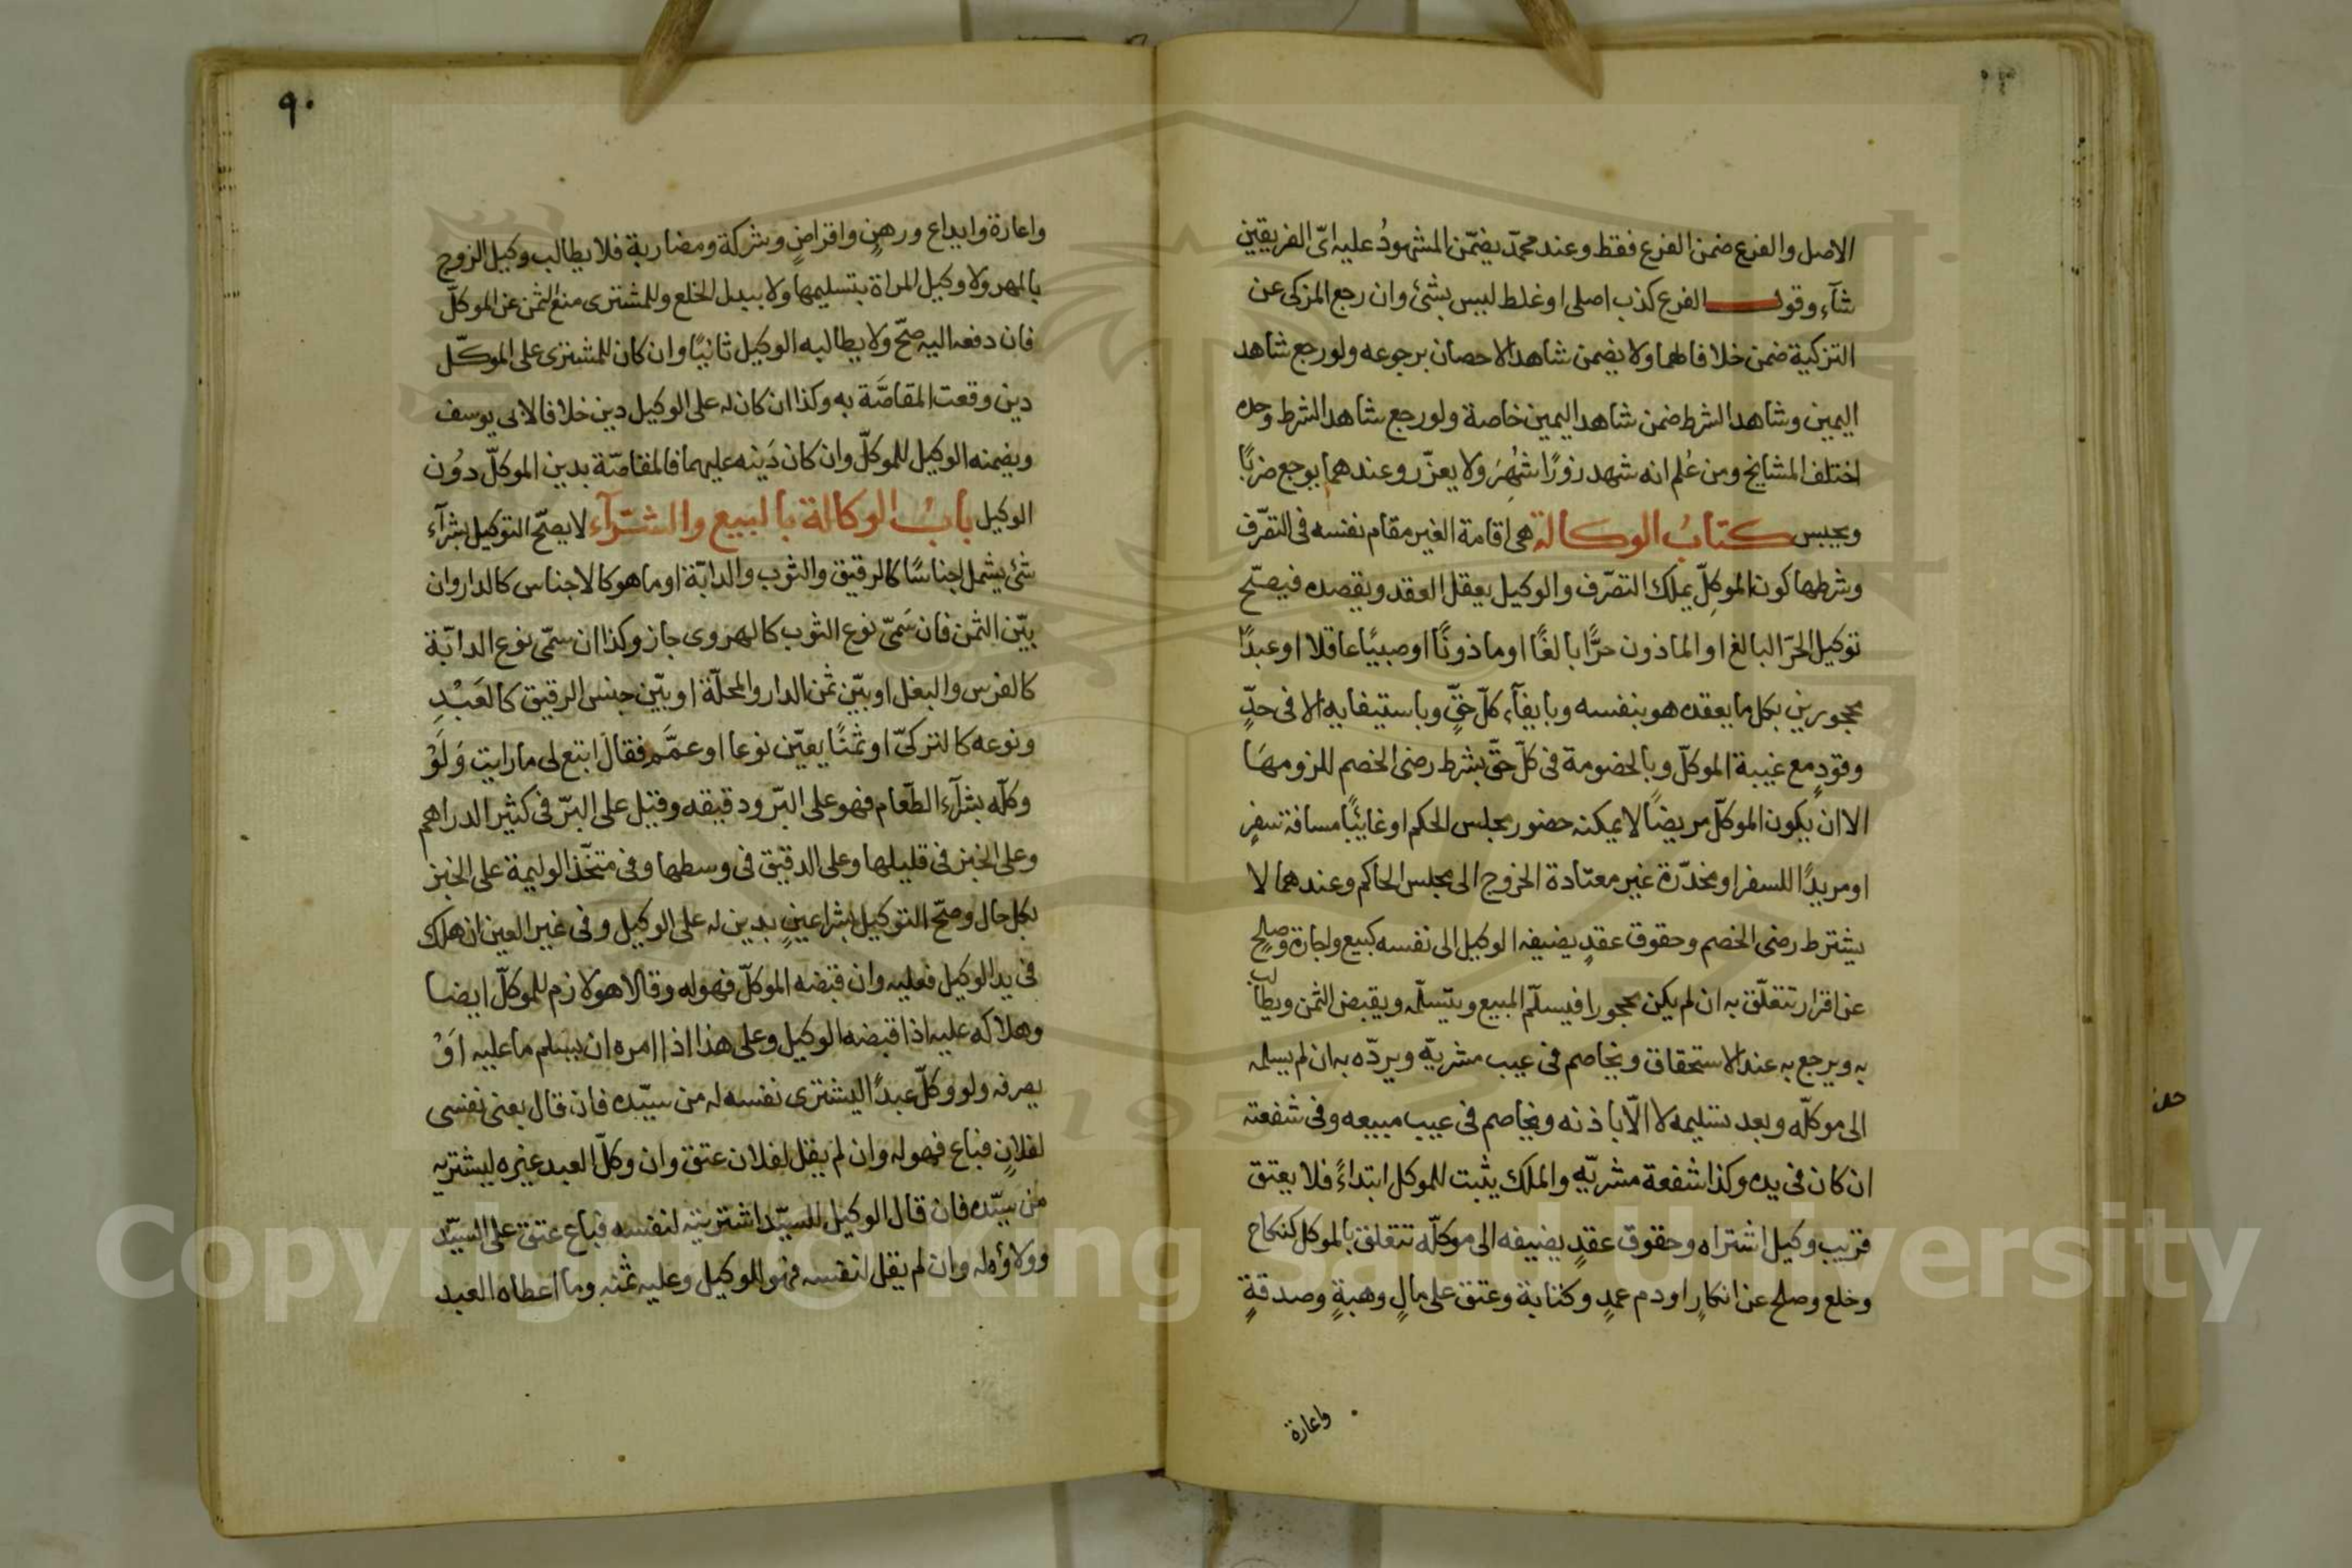 الاصل والفرع ضمن الفرع فقط وعند محمّد يضمّن المشهودُ عليه ايّ الفريقين
شآء وقول الفرع كذب اصلى او غلط ليس بشئ وان رجع المزكى عن
التزكية ضمن خلافا لهما ولا يضمن شاهد الاحصان برجوعه ولو رجع شاهد
اليمين وشاهد الشرط ضمن شاهد اليمين خاصة ولو رجع شاهد الشرط وحده
اختلف المشايخ ومن عُلم انه شهد زورًا شُهِرَ ولا يعزّر وعندهما يوجع ضربًا
ويحبس كتابُ الوكالة هى اقامة الغير مقام نفسه فى التصّرف
وشرطها كون الموكِلّ يملك التصّرف والوكيل يعقل العقد ويقصده فيصحّ
توكيل الحرّ البالغ او الماذون حرًّا بالغًا او ماذونًا او صبيًا عاقلا او عبدًا
محجورين بكل ما يعقده هو بنفسه وبايفآء كلّ حقٍّ وباستيفايه الا فى حدٍّ
وقودٍ مع غيبة الموكلّ وبالخصومة فى كلّ حقّ بشرط رضى الخصم للزومهَا
الا انْ يكون الموكلّ مريضًا لا يمكنه حضور مجلس الحكم او غائبًا مسافة سفرٍ
او مريدًا للسفر او مخدّرة غير معتادة الخروج الى مجلس الحاكم وعندهما لا
يشترط رضى الخصم وحقوق عقدٍ يضيفه الوكيل الى نفسه كبيع واجارة وصلحٍ
عن اقرار تتعلّق به ان لم يكن محجورا فيسلّم المبيع ويتسلّمه ويقبض الثمن ويطالب
به ويرجع به عند الاستحقاق ويخاصم فى عيب مشريّه ويردّه به ان لم يسلمه
الى موكلّه وبعد تسليمه لا الّا باذنه ويخاصم فى عيب مبيعه وفى شفعته
ان كان فى يده وكذا شفعة مشريّه والملك يثبت للموكل ابتداءً فلا يعتق
قريب وكيل اشتراه وحقوق عقدٍ يضيفه الى موكلّه تتعلق بالموكل كنكاح
وخلع وصلح عن انكارٍ او دم عمدٍ وكتابة وعتق على مالٍ وهبةٍ وصدقةٍ
واعارة
٩٠
واعارة وايداع ورهنٍ واقراضٍ وشركة ومضاربة فلا يطالب وكيل الزوج
بالمهر ولا وكيل المراة بتسليمها ولا ببدل الخلع وللمشترى منع الثمن عن الموكلّ
فان دفعه اليه صحّ ولا يطالبه الوكيل ثانيًا وان كان للمشترى على الموكّل
دين وقعت المقاصَّة به وكذا ان كان له على الوكيل دين خلافا لابى يوسف
ويضمنه الوكيل للموكلّ وان كان دَينه عليهما فالمقاصّة بدين الموكلّ دوُن
الوكيل بابُ الوكالة بالبيع والشّرآء لا يصحّ التوكيل بشرآء
شئ يشمل اجناسًا كالرقيق والثوب والدابّة او ما هو كالاجناس كالدار وان
بيّن الثمن فان سَمىّ نوع الثوب كالهروى جاز وكذا ان سمّى نوع الدابّة
كالفرس والبغل او بيّن ثمن الدار والمحلّة او بيّن جنس الرقيق كالعَبْدِ
ونوعه كالتركىّ او ثمنًا يعيّن نوعا او عمَّم فقال ابتع لى ما رايت وَلَوْ
وكلّه بشرآء الطّعام فهو على البرّ ودقيقه وقيل على البرّ فى كثير الدراهم
وعلى الخبز فى قليلها وعلى الدقيق فى وسطها وفى متخّذ الوليمة على الخبز
بكل حال وصحّ التوكيل بشرا عينٍ بدين له على الوكيل وفى غير العين ان هلك
فى يد الوكيل فعليه وان قبضه الموكلّ فهو له وقالا هو لازم للموكلّ ايضا
وهلاكه عليه اذا قبضه الوكيل وعلى هذا اذا امره ان يسلم ما عليه اَوْ
يصرفه ولو وكلّ عبدًا ليشترى نفسه له من سيّده فان قال بعنى نفسى
لفلانٍ فباع فهو له وان لم يقل لفلان عتق وان وكلّ العبد غيره ليشتريه
من سيّده فان قال الوكيل للسيّد اشتريته لنفسه فباع عتق على السيّد
وولاؤه له وان لم يقل لنفسه فهو للوكيل وعليه ثمنه وما اعطاه العبد
Copyright © King Saud University
1957